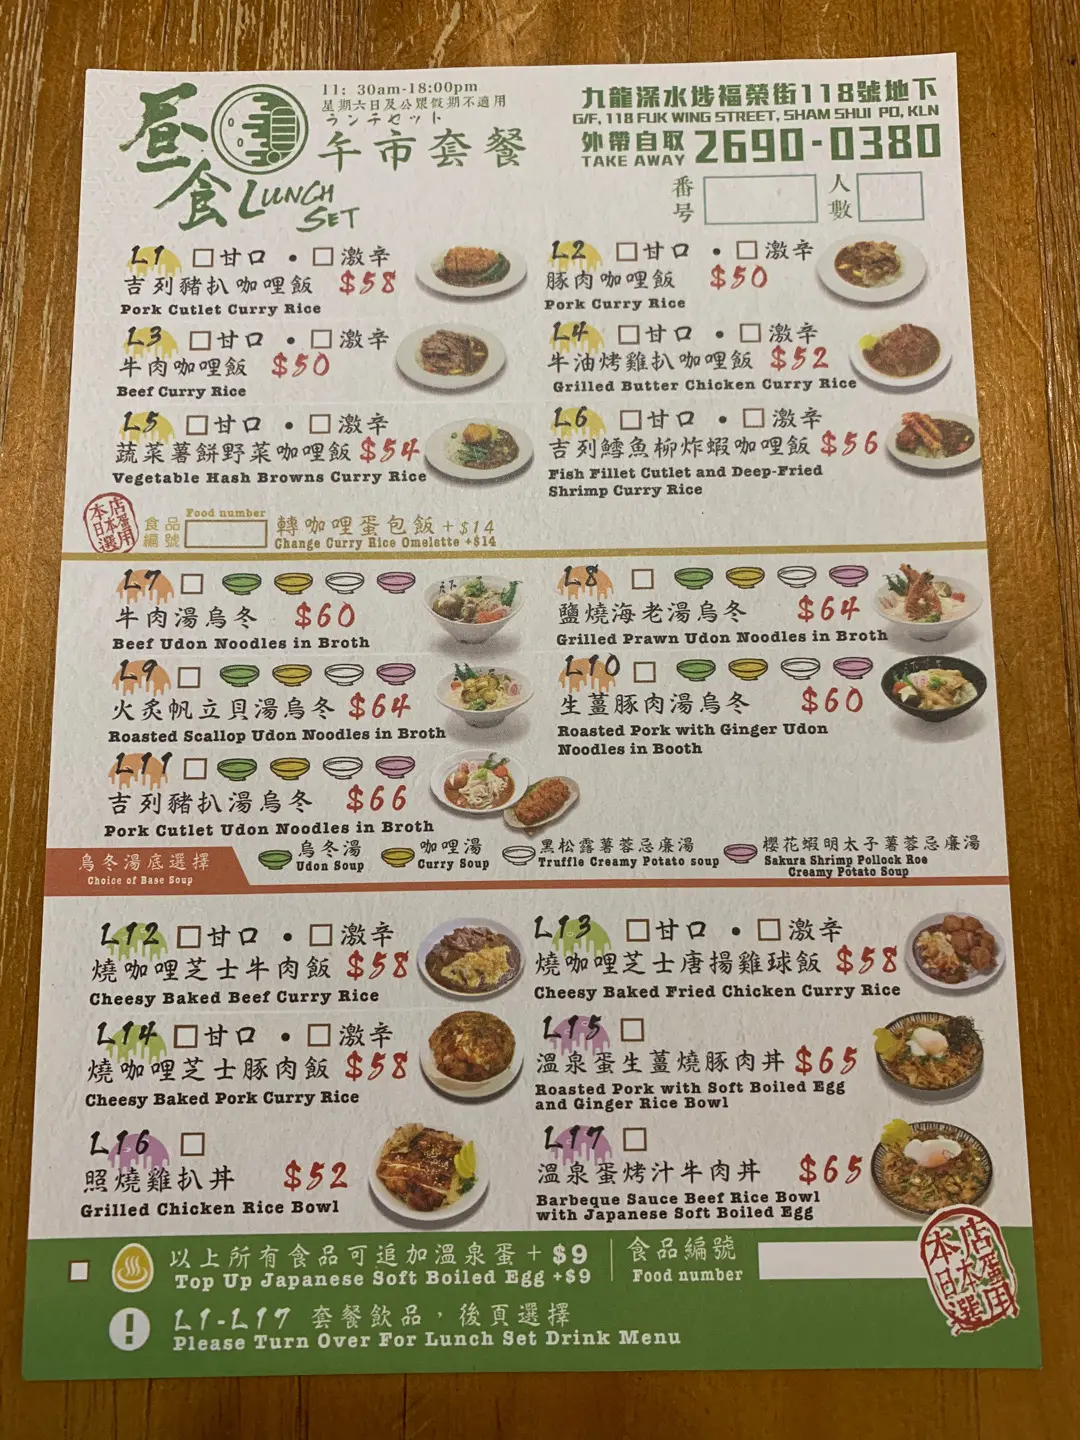 昼食 LUNCH SET
11: 30am-18:00pm
星期六日及公眾假期不適用
ランチセット
午市套餐
九龍深水埗福榮街118號地下
G/F, 118 FUK WING STREET, SHAM SHUI PO, KLN
外帶自取 2690-0380
TAKE AWAY
番号 人數
L1 甘口 • 激辛
吉列豬扒咖哩飯 $58
Pork Cutlet Curry Rice
L2 甘口 • 激辛
豚肉咖哩飯 $50
Pork Curry Rice
L3 甘口 • 激辛
牛肉咖哩飯 $50
Beef Curry Rice
L4 甘口 • 激辛
牛油烤雞扒咖哩飯 $52
Grilled Butter Chicken Curry Rice
L5 甘口 • 激辛
蔬菜薯餅野菜咖哩飯 $54
Vegetable Hash Browns Curry Rice
L6 甘口 • 激辛
吉列鱈魚柳炸蝦咖哩飯 $56
Fish Fillet Cutlet and Deep-Fried
Shrimp Curry Rice
本店日本蛋選用
食品編號 Food number
轉咖哩蛋包飯+$14
Change Curry Rice Omelatte +$14
L7
牛肉湯烏冬 $60
Beef Udon Noodles in Broth
L8
鹽燒海老湯烏冬 $64
Grilled Prawn Udon Noodles in Broth
L9
火炙帆立貝湯烏冬 $64
Roasted Scallop Udon Noodles in Broth
L10
生薑豚肉湯烏冬 $60
Roasted Pork with Ginger Udon
Noodles in Booth
L11
吉列豬扒湯烏冬 $66
Pork Cutlet Udon Noodles in Broth
烏冬湯底選擇
Choice of Base Soup
烏冬湯
Udon Soup
咖哩湯
Curry Soup
黑松露薯蓉忌廉湯
Truffle Creamy Potato soup
櫻花蝦明太子薯蓉忌廉湯
Sakura Shrimp Pollock Roe
Creamy Potato Soup
L12 甘口 • 激辛
燒咖哩芝士牛肉飯 $58
Cheesy Baked Beef Curry Rice
L13 甘口 • 激辛
燒咖哩芝士唐揚雞球飯 $58
Cheesy Baked Fried Chicken Curry Rice
L14 甘口 • 激辛
燒咖哩芝士豚肉飯 $58
Cheesy Baked Pork Curry Rice
L15
溫泉蛋生薑燒豚肉丼 $65
Roasted Pork with Soft Boiled Egg
and Ginger Rice Bowl
L16
照燒雞扒丼 $52
Grilled Chicken Rice Bowl
L17
溫泉蛋烤汁牛肉丼 $65
Barbeque Sauce Beef Rice Bowl
with Japanese Soft Boiled Egg
以上所有食品可追加溫泉蛋+$9
Top Up Japanese Soft Boiled Egg +$9
食品編號
Food number
本店日本蛋選用
L1-L17 套餐飲品，後頁選擇
Please Turn Over For Lunch Set Drink Menu